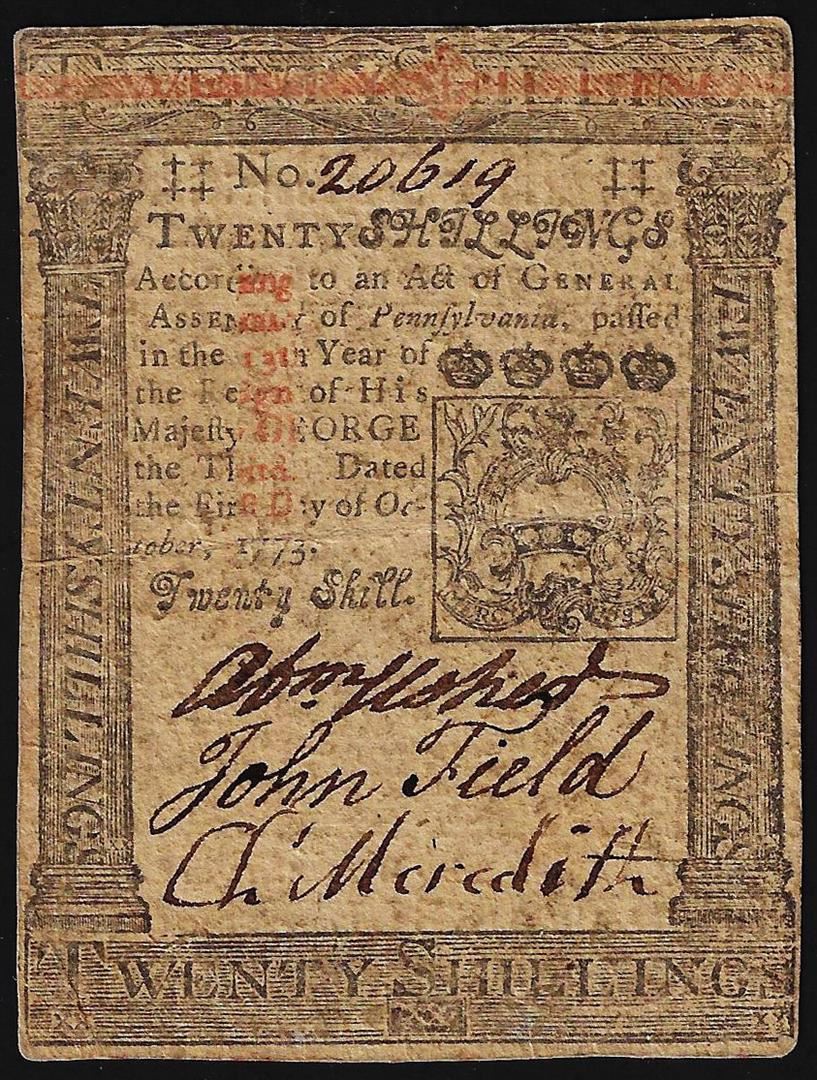 TWENTY SHILLINGS
‡‡ No. 20619 ‡‡
TWENTY SHILLINGS
According to an Act of GENERAL
ASSEMBLY of Pennſylvania, paſſed
in the 13th Year of
the Reign of His
Majeſty GEORGE
the Third. Dated
the Firſt Day of Oc-
tober, 1773.
Twenty Shill.
TWENTY SHILLINGS
TWENTY SHILLINGS
John Field
Ch' Meredith
TWENTY SHILLINGS
XX XX